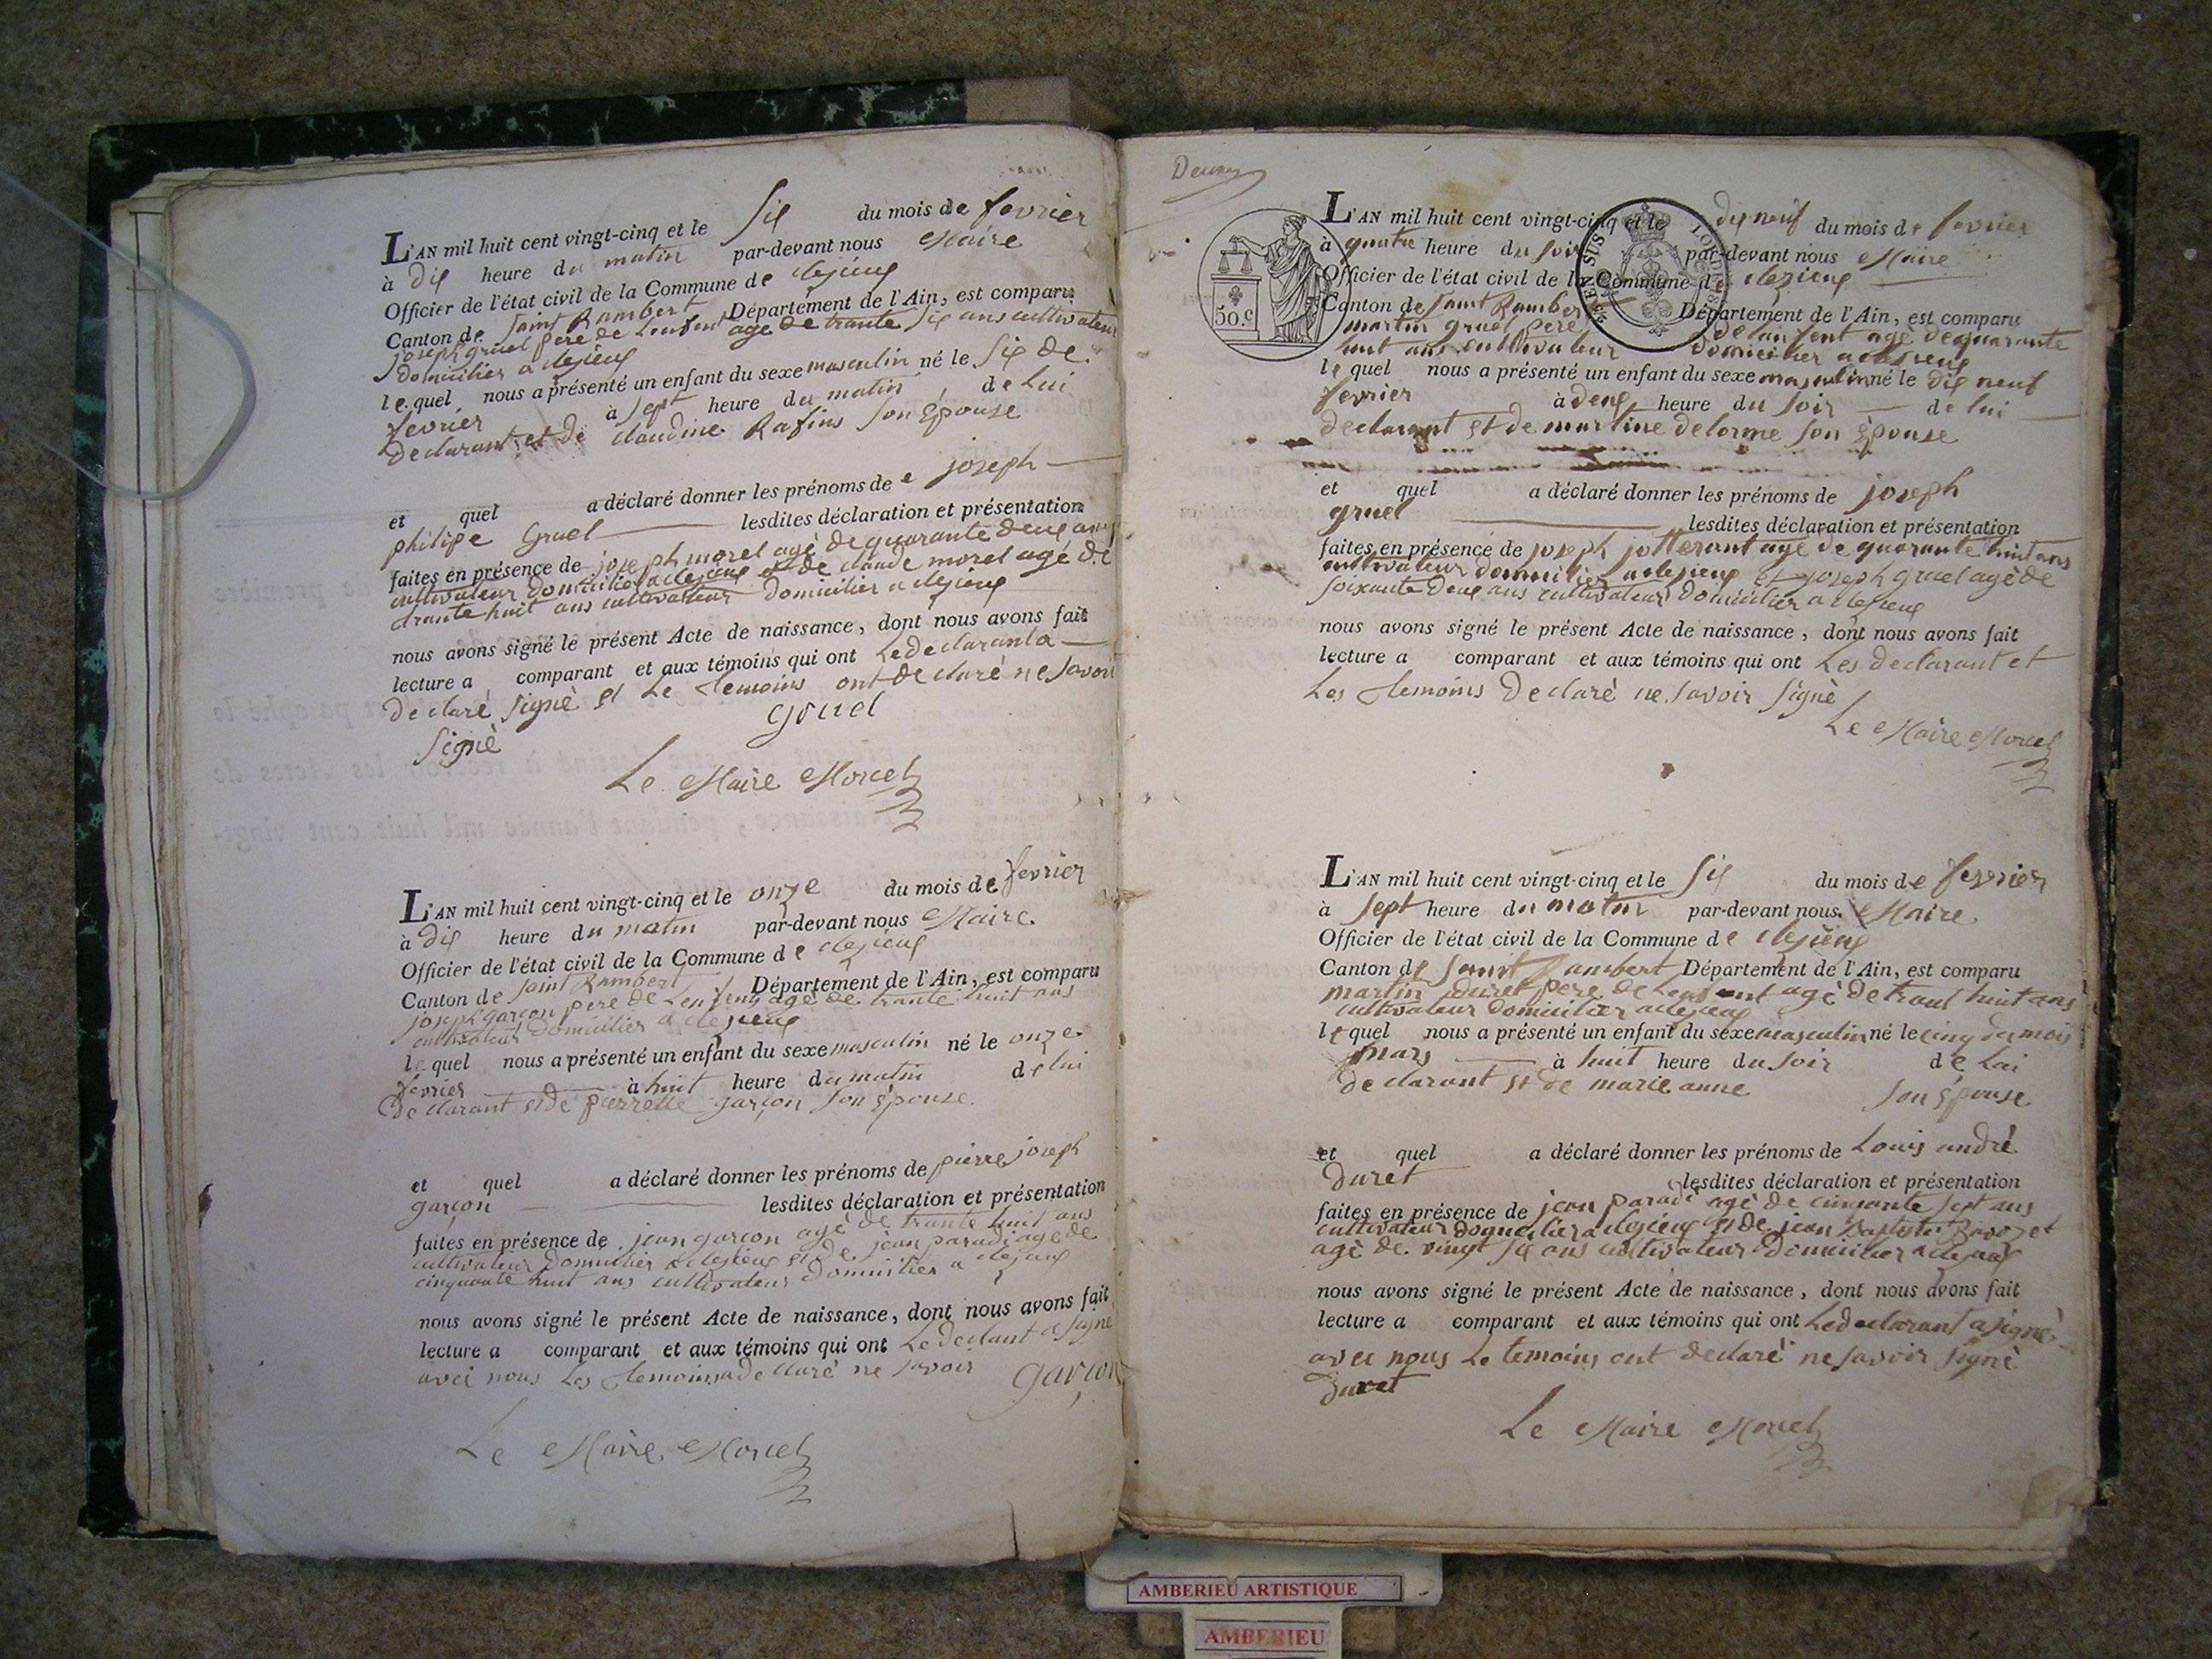 L'AN mil huit cent vingt-cinq et le six du mois de fevrier
à dix heure du matin par-devant nous Maire
Officier de l'état civil de la Commune de clezieux
Canton de saint Rambert Département de l'Ain, est comparu
joseph gruel pere de Lenfent agé de trante six ans cultivateur
domicilier a clezieux
lequel nous a présenté un enfant du sexe masculin né le six de
fevrier à sept heure du matin de Lui
declarant et de claudine Rafins son épouse
et quel a déclaré donner les prénoms de joseph
philipe Gruel lesdites déclaration et présentation
faites en présence de joseph morel agé de quarante deux ans
cultivateur domicilier a clezieux et de claude morel agé de
trante huit ans cultivateur domicilier a clezieux
nous avons signé le présent Acte de naissance, dont nous avons fait
lecture a comparant et aux témoins qui ont Le declarant a
declaré signé et Le temoins ont declaré ne savoir
signè gruel
Le Maire Morel
L'AN mil huit cent vingt-cinq et le onze du mois de fevrier
à dix heure du matin par-devant nous Maire
Officier de l'état civil de la Commune de clezieux
Canton de saint Rambert Département de l'Ain, est comparu
joseph garçon pere de Lenfent agé de trante huit ans
cultivateur domicilier a clezieux
lequel nous a présenté un enfant du sexe masculin né le onze
fevrier à huit heure du matin de lui
declarant et de pierrette garçon son épouse
et quel a déclaré donner les prénoms de pierre joseph
garçon lesdites déclaration et présentation
faites en présence de jean garcon agé de trante huit ans
cultivateur domicilier a clezieux et de jean paradi agé de
cinquante huit ans cultivateur domicilier a clezieux
nous avons signé le présent Acte de naissance, dont nous avons fait
lecture a comparant et aux témoins qui ont Le declant a signé
avec nous Les temoins a declaré ne savoir garçon
Le Maire Morel
Deux
50.c
L'AN mil huit cent vingt-cinq et le dix neuf du mois de fevrier
à quatre heure du soir par-devant nous Maire
Officier de l'état civil de la Commune de clezieux
Canton de saint Rambert Département de l'Ain, est comparu
martin gruel pere de lenfent agé de quarante
huit ans cultivateur domicilier a clezieux
lequel nous a présenté un enfant du sexe masculin né le dix neuf
fevrier à deux heure du soir de lui
declarant et de martine delorme son épouse
et quel a déclaré donner les prénoms de joseph
gruel lesdites déclaration et présentation
faites en présence de joseph jotterant agé de quarante huit ans
cultivateur domicilier a clezieux et joseph gruel agé de
soixante deux ans cultivateur domicilier a clezieux
nous avons signé le présent Acte de naissance, dont nous avons fait
lecture a comparant et aux témoins qui ont Les declarant et
Les temoins declaré ne savoir signè
Le Maire Morel
L'AN mil huit cent vingt-cinq et le six du mois de fevrier
à sept heure du matin par-devant nous Maire
Officier de l'état civil de la Commune de clezieux
Canton de saint Rambert Département de l'Ain, est comparu
martin duret pere de Lenfent agé de trant huit ans
cultivateur domicilier a clezieux
lequel nous a présenté un enfant du sexe masculin né le cinq du mois
mars à huit heure du soir de Lui
declarant et de marie anne son épouse
et quel a déclaré donner les prénoms de Louis andré
duret lesdites déclaration et présentation
faites en présence de jean paradi agé de cinquante sept ans
cultivateur domicilier a clezieux et de jean Baptiste
agé de vingt six ans cultivateur domicilier a clezieux
nous avons signé le présent Acte de naissance, dont nous avons fait
lecture a comparant et aux témoins qui ont Le declarant a signé
avec nous Le temoins ont declaré ne savoir signè
duret
Le Maire Morel
AMBERIEU ARTISTIQUE
AMBERIEU